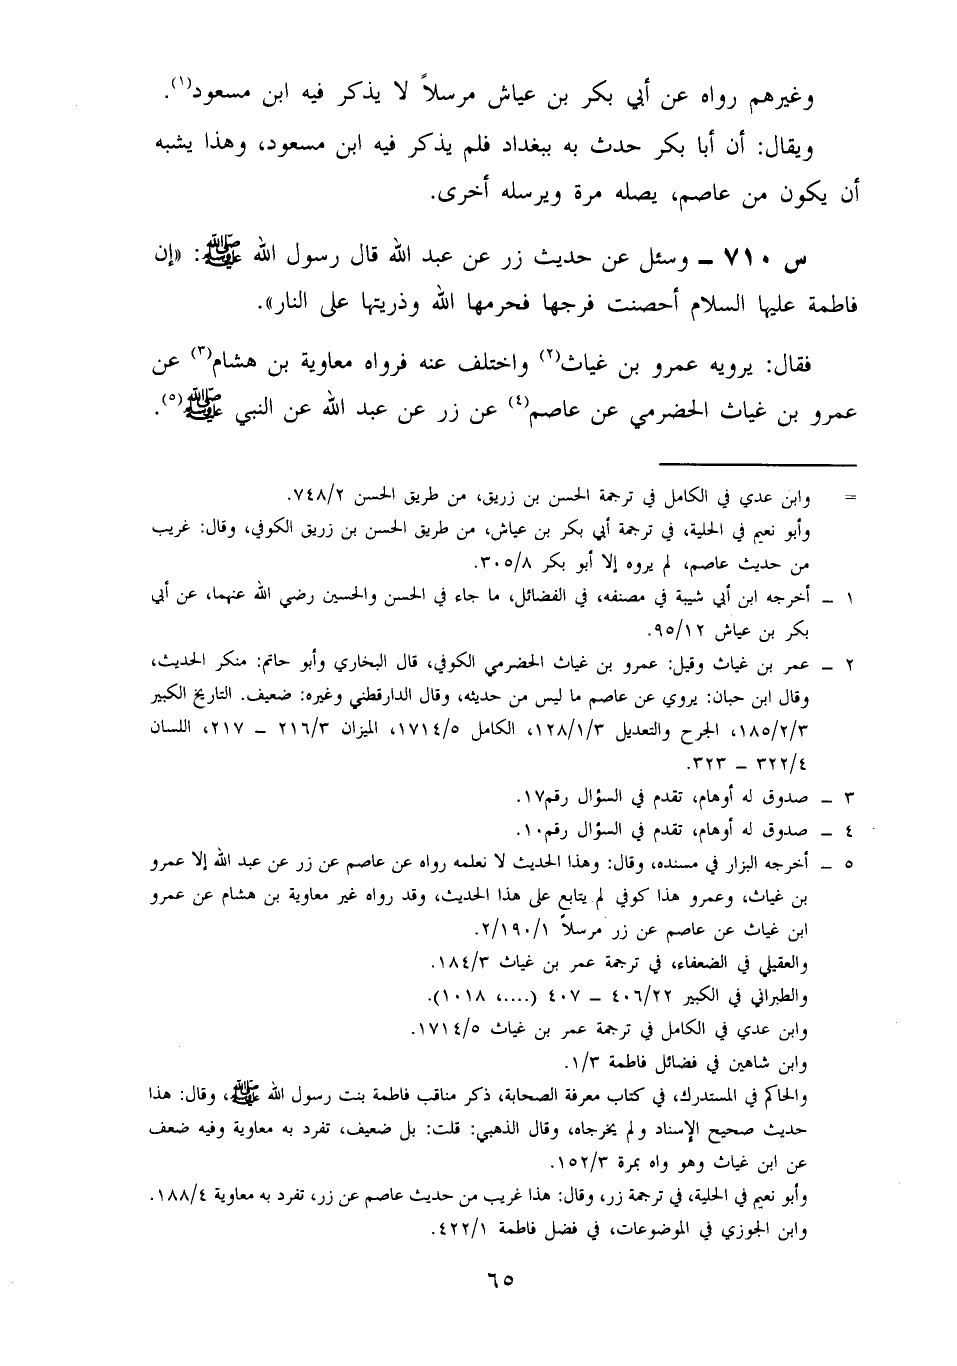 وغيرهم رواه عن أبي بكر بن عياش مرسلاً لا يذكر فيه ابن مسعود(١).
ويقال: أن أبا بكر حدث به ببغداد فلم يذكر فيه ابن مسعود، وهذا يشبه
أن يكون من عاصم، يصله مرة ويرسله أخرى.
س ٧١٠ ـ وسئل عن حديث زر عن عبد الله قال رسول الله ﷺ: «إن
فاطمة عليها السلام أحصنت فرجها فحرمها الله وذريتها على النار».
فقال: يرويه عمرو بن غياث(٢) واختلف عنه فرواه معاوية بن هشام(٣) عن
عمرو بن غياث الحضرمي عن عاصم(٤) عن زر عن عبد الله عن النبي ﷺ(٥).
= وابن عدي في الكامل في ترجمة الحسن بن زريق، من طريق الحسن ٧٤٨/٢.
وأبو نعيم في الحلية، في ترجمة أبي بكر بن عياش، من طريق الحسن بن زريق الكوفي، وقال: غريب
من حديث عاصم، لم يروه إلا أبو بكر ٣٠٥/٨.
١ ـ أخرجه ابن أبي شيبة في مصنفه، في الفضائل، ما جاء في الحسن والحسين رضي الله عنهما، عن أبي
بكر بن عياش ٩٥/١٢.
٢ ـ عمر بن غياث وقيل: عمرو بن غياث الحضرمي الكوفي، قال البخاري وأبو حاتم: منكر الحديث،
وقال ابن حبان: يروي عن عاصم ما ليس من حديثه، وقال الدارقطني وغيره: ضعيف. التاريخ الكبير
١٨٥/٢/٣، الجرح والتعديل ١٢٨/١/٣، الكامل ١٧١٤/٥، الميزان ٢١٦/٣ ـ ٢١٧، اللسان
٣٢٢/٤ ـ ٣٢٣.
٣ ـ صدوق له أوهام، تقدم في السؤال رقم١٧.
٤ ـ صدوق له أوهام، تقدم في السؤال رقم١٠.
٥ ـ أخرجه البزار في مسنده، وقال: وهذا الحديث لا نعلمه رواه عن عاصم عن زر عن عبد الله إلا عمرو
بن غياث، وعمرو هذا كوفي لم يتابع على هذا الحديث، وقد رواه غير معاوية بن هشام عن عمرو
ابن غياث عن عاصم عن زر مرسلاً ٢/١٩٠/١.
والعقيلي في الضعفاء، في ترجمة عمر بن غياث ١٨٤/٣.
والطبراني في الكبير ٤٠٦/٢٢ ـ ٤٠٧ (....، ١٠١٨).
وابن عدي في الكامل في ترجمة عمر بن غياث ١٧١٤/٥.
وابن شاهين في فضائل فاطمة ١/٣.
والحاكم في المستدرك، في كتاب معرفة الصحابة، ذكر مناقب فاطمة بنت رسول الله ﷺ، وقال: هذا
حديث صحيح الإسناد ولم يخرجاه، وقال الذهبي: قلت: بل ضعيف، تفرد به معاوية وفيه ضعف
عن ابن غياث وهو واه بمرة ١٥٢/٣.
وأبو نعيم في الحلية، في ترجمة زر، وقال: هذا غريب من حديث عاصم عن زر، تفرد به معاوية ١٨٨/٤.
وابن الجوزي في الموضوعات، في فضل فاطمة ٤٢٢/١.
٦٥